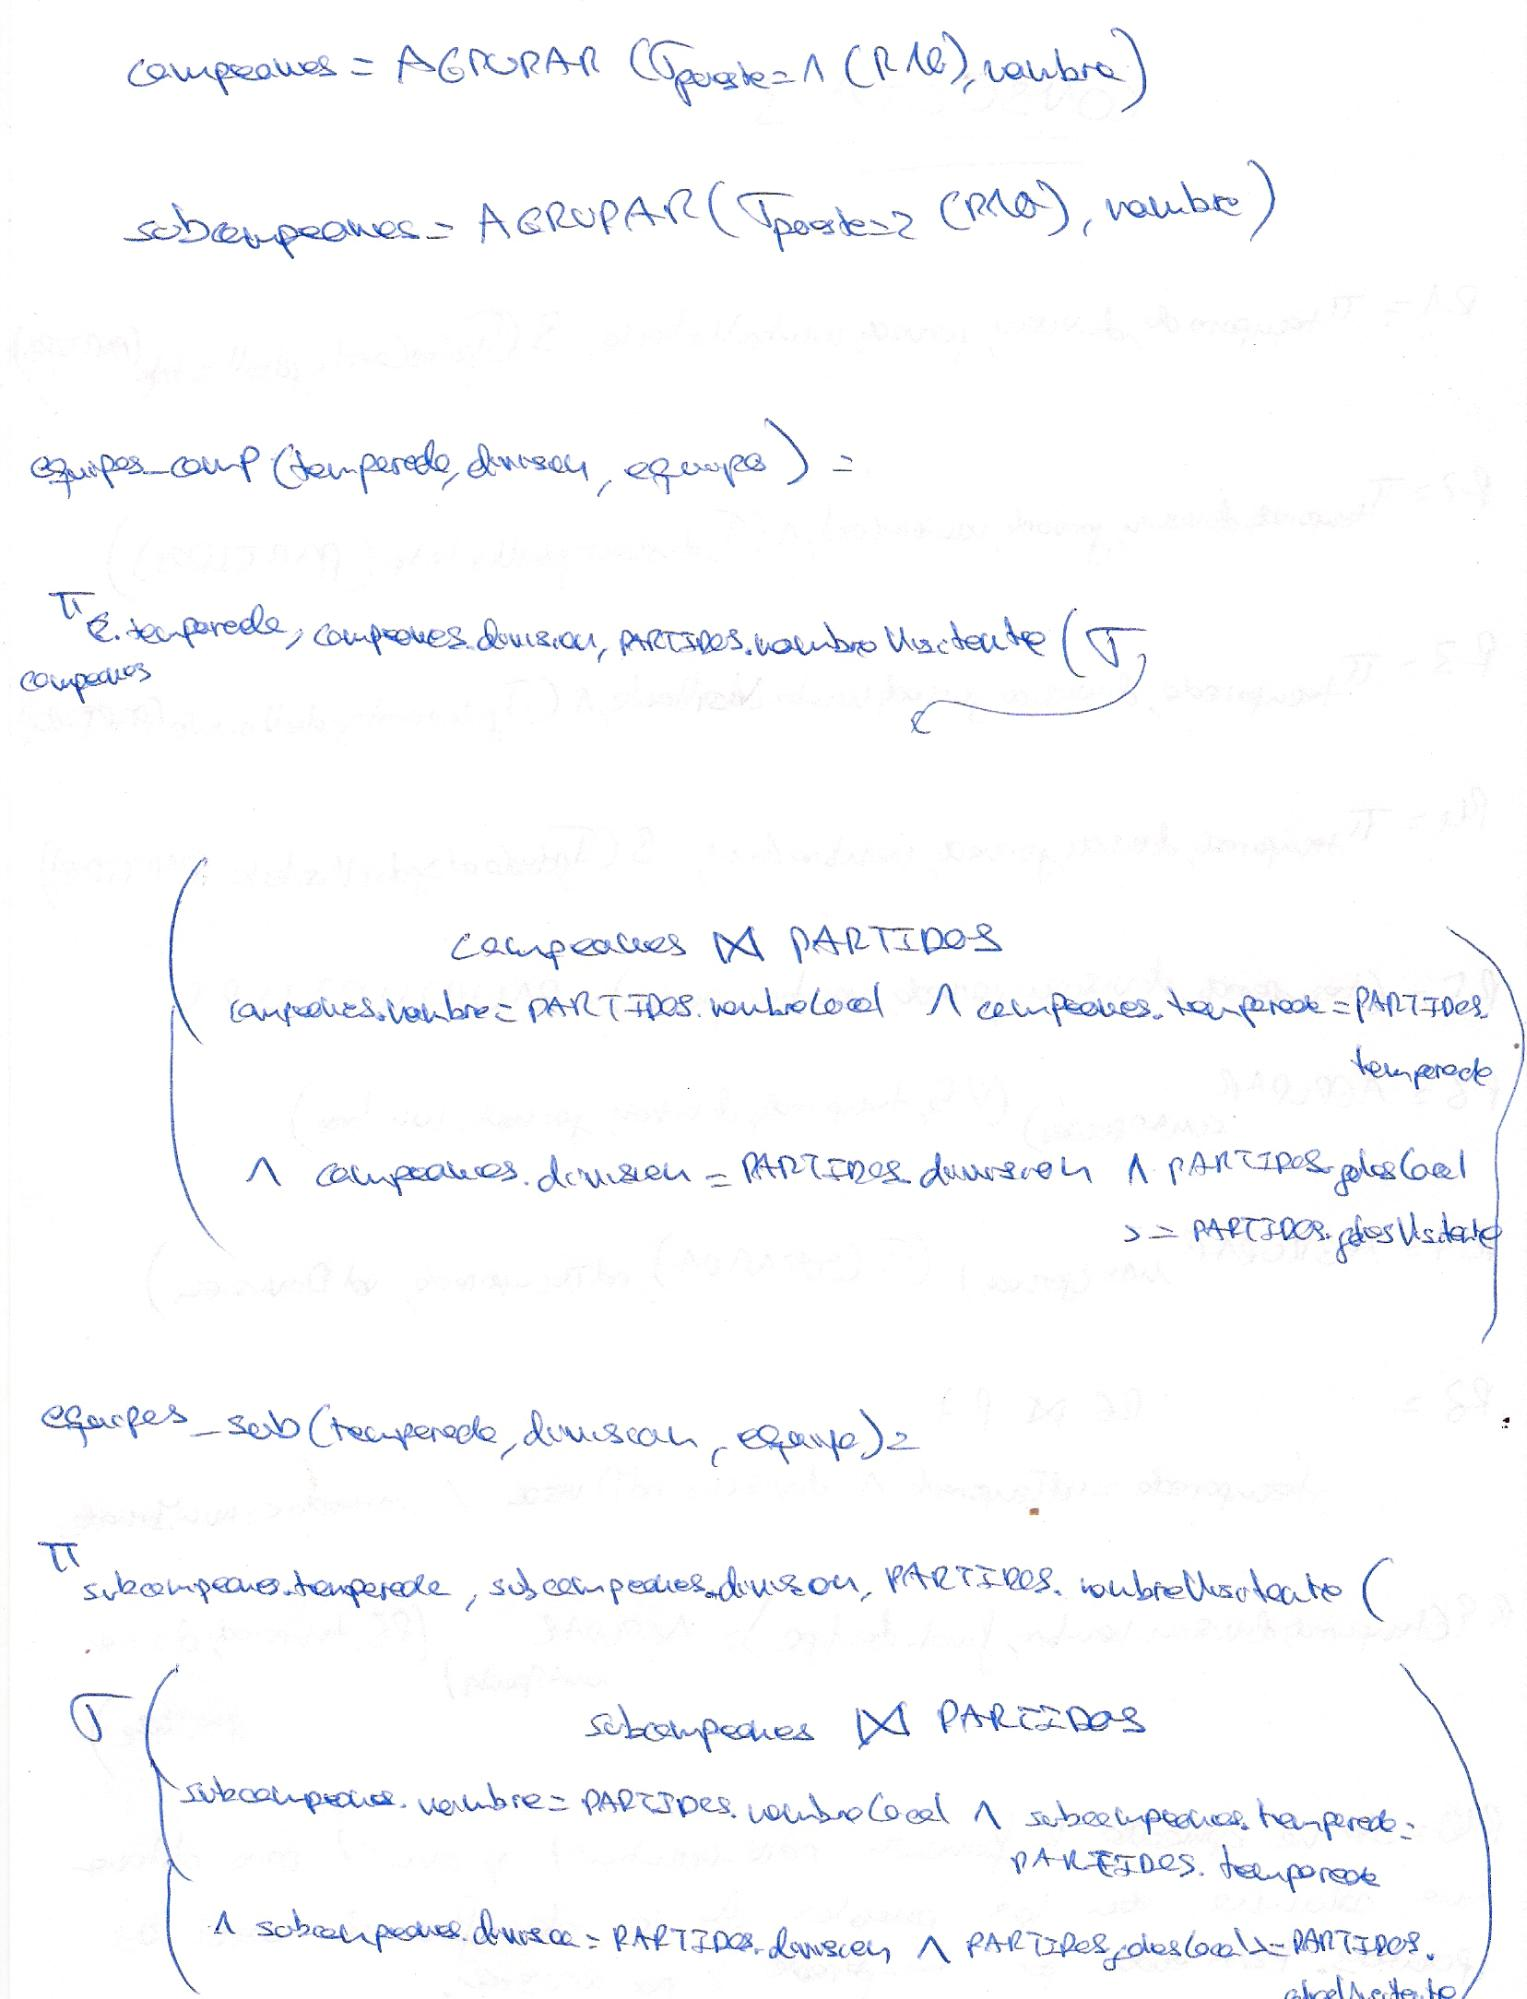 campeones = AGRUPAR (σ puesto=1 (R10), nombre)
subcampeones = AGRUPAR (σ puesto=2 (R10), nombre)
equipos_camp (temporada, division, equipo) =
π campeones.temporada, campeones.division, PARTIDOS.nombreVisitante (σ
campeones ⋈ PARTIDOS
campeones.nombre = PARTIDOS.nombreLocal ∧ campeones.temporada = PARTIDOS.
temporada
∧ campeones.division = PARTIDOS.division ∧ PARTIDOS.golesLocal
>= PARTIDOS.golesVisitante
equipos_sub (temporada, division, equipo) =
π subcampeones.temporada, subcampeones.division, PARTIDOS.nombreVisitante (
σ ( subcampeones ⋈ PARTIDOS
subcampeones.nombre = PARTIDOS.nombreLocal ∧ subcampeones.temporada =
PARTIDOS.temporada
∧ subcampeones.division = PARTIDOS.division ∧ PARTIDOS.golesLocal >= PARTIDOS.
golesVisitante )